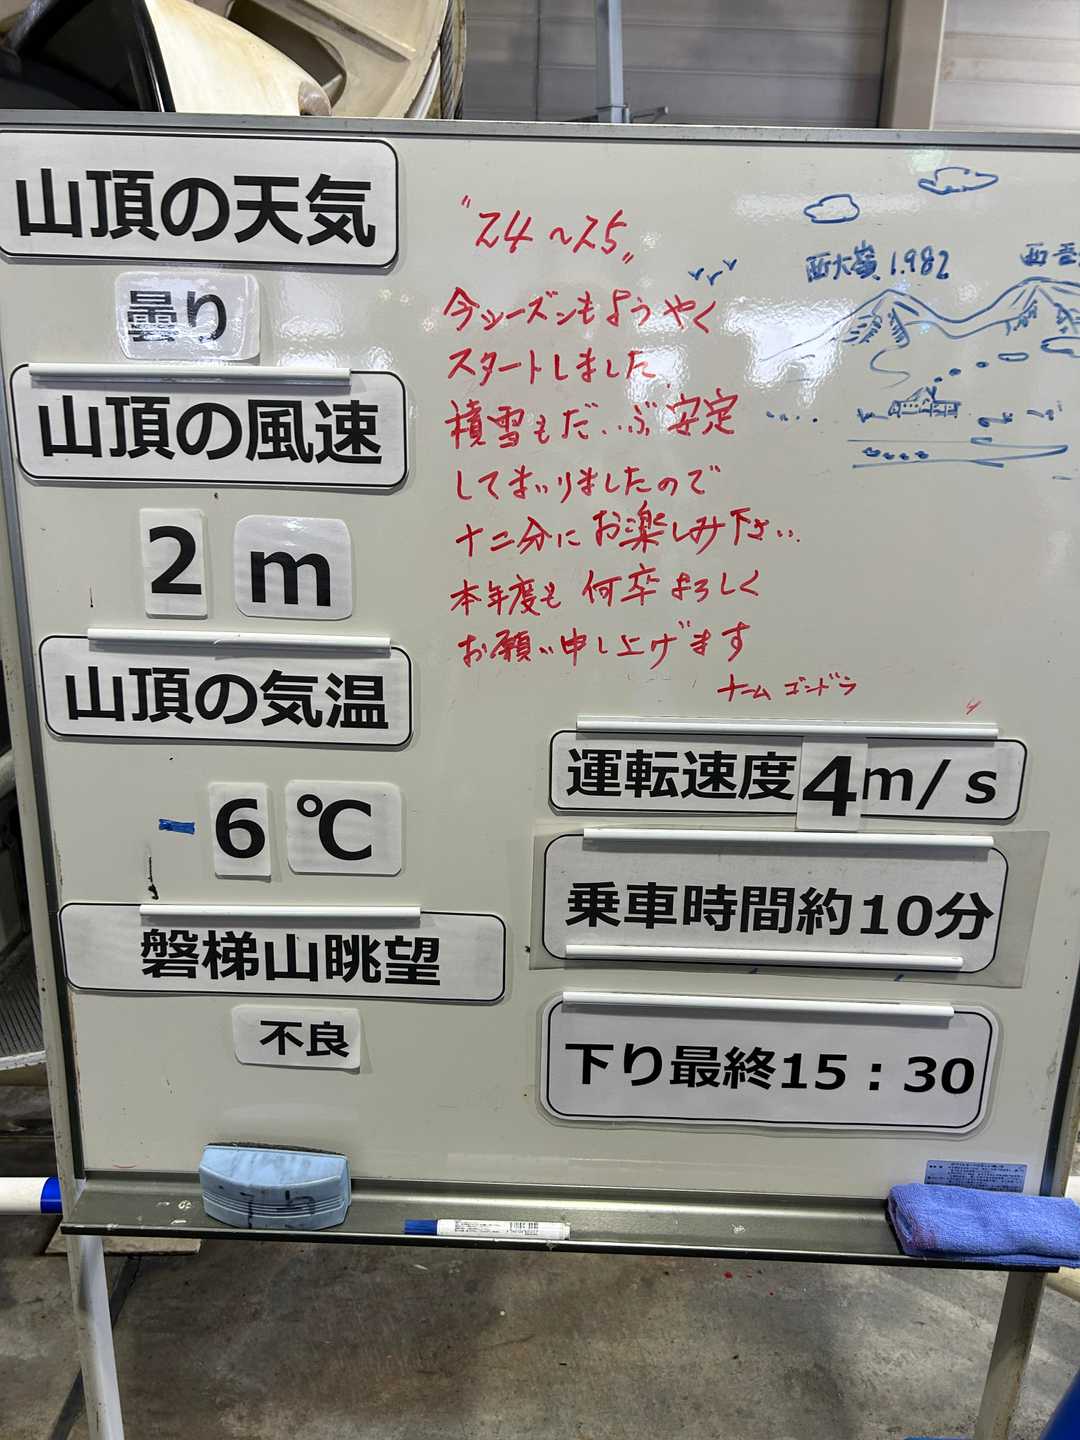 山頂の天気
曇り
山頂の風速
2 m
山頂の気温
-6 ℃
磐梯山眺望
不良
"24〜25"
今シーズンもようやく
スタートしました
積雪もだいぶ安定
してまいりましたので
十二分にお楽しみ下さい.
本年度も何卒よろしく
お願い申し上げます
チーム ゴンドラ
西大巓 1.982
西吾
運転速度4m/s
乗車時間約10分
下り最終15：30